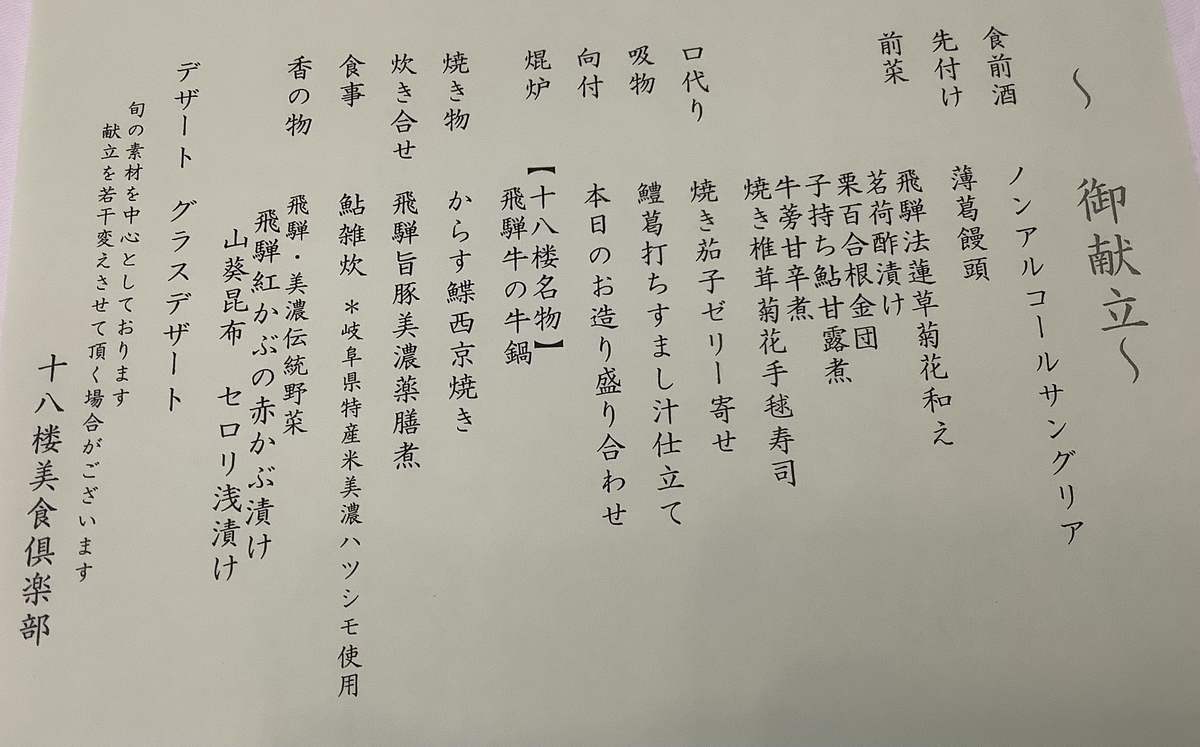 ～ 御献立～
食前酒 ノンアルコールサングリア
先付け 薄葛饅頭
前菜 飛騨法蓮草菊花和え
茗荷酢漬け
栗百合根金団
子持ち鮎甘露煮
牛蒡甘辛煮
焼き椎茸菊花手毬寿司
口代り 焼き茄子ゼリー寄せ
吸物 鱧葛打ちすまし汁仕立て
向付 本日のお造り盛り合わせ
焜炉 【十八楼名物】
飛騨牛の牛鍋
焼き物 からす鰈西京焼き
炊き合せ 飛騨旨豚美濃薬膳煮
食事 鮎雑炊 ＊岐阜県特産米美濃ハツシモ使用
香の物 飛騨・美濃伝統野菜
飛騨紅かぶの赤かぶ漬け
山葵昆布 セロリ浅漬け
デザート グラスデザート
旬の素材を中心としております
献立を若干変えさせて頂く場合がございます
十八楼美食倶楽部